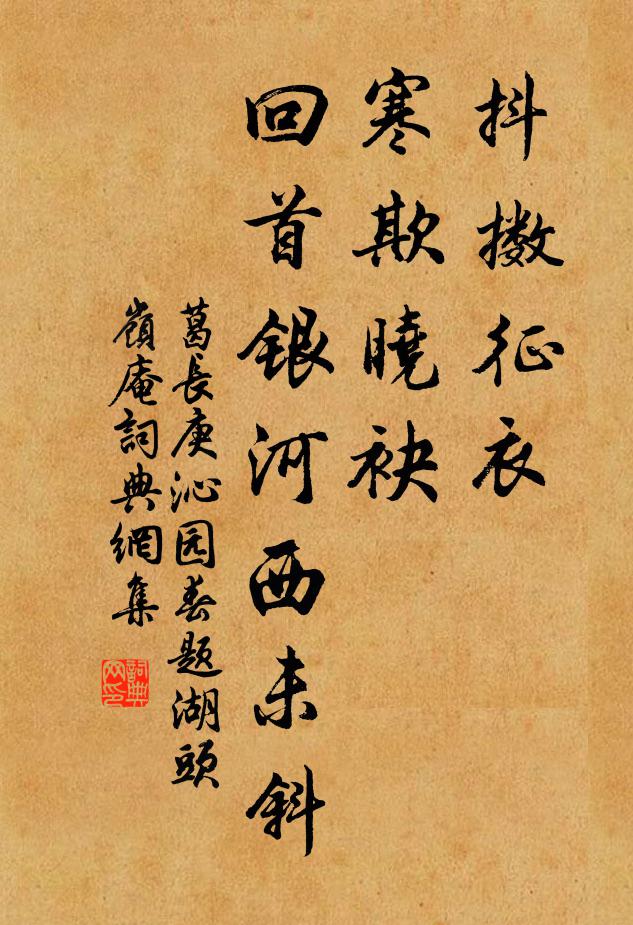 抖擞征衣
寒欺曉袂
回首銀河西未斜
葛長庚沁园春題湖頭
嶺庵詞典網集
詞典网印